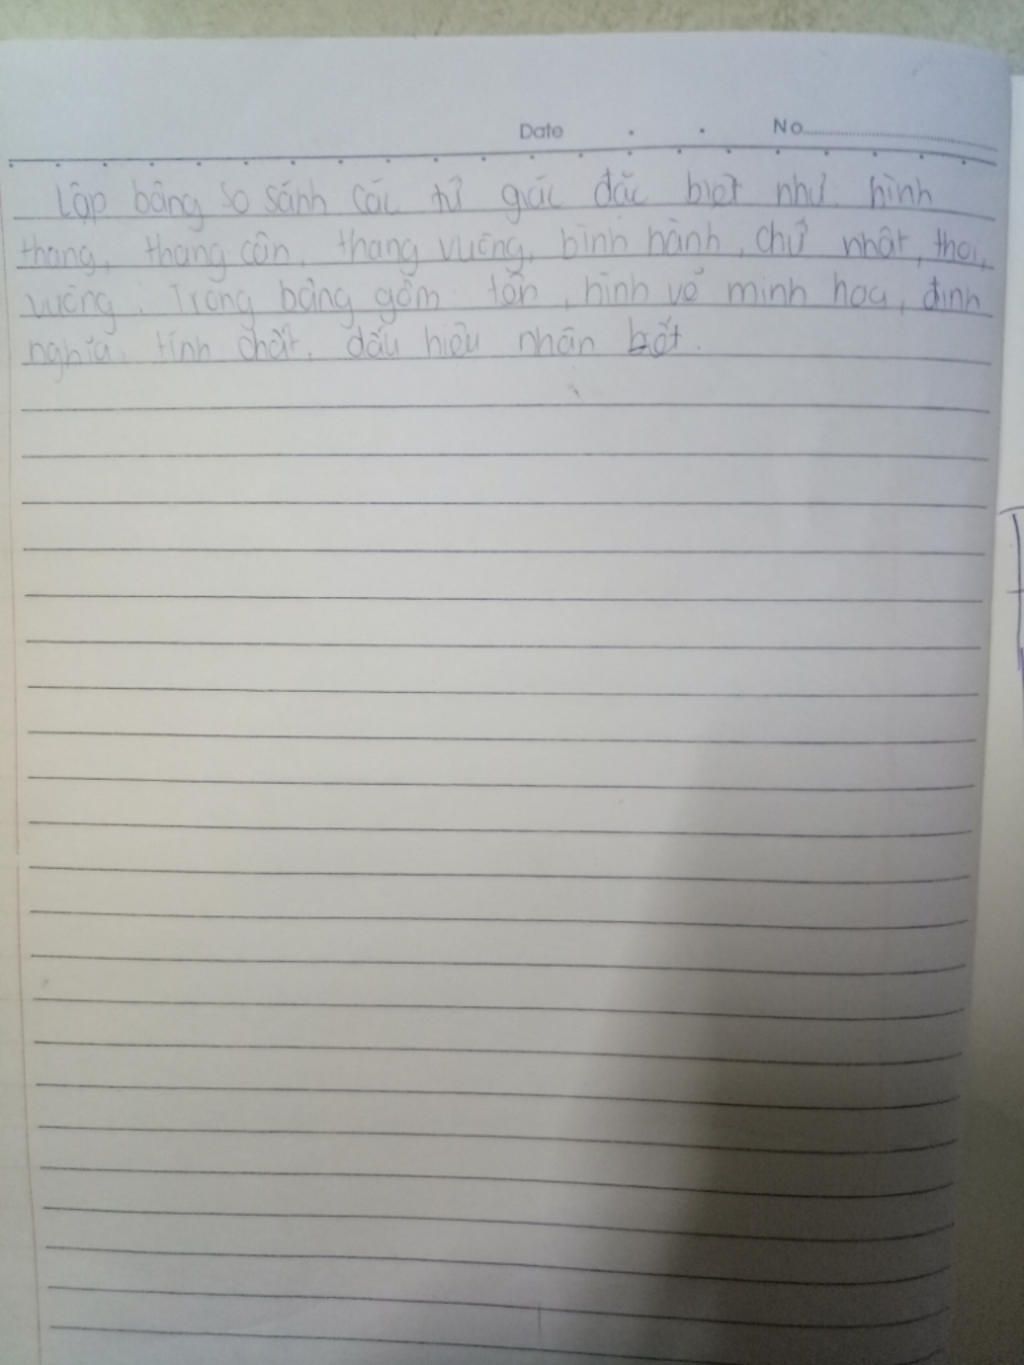 Date . . No
Lập bảng so sánh các tứ giác đặc biệt như hình
thang, thang cân, thang vuông, bình hành, chữ nhật, thoi,
vuông. Trong bảng gồm tên, hình vẽ minh hoạ, định
nghĩa, tính chất, dấu hiệu nhận biết.